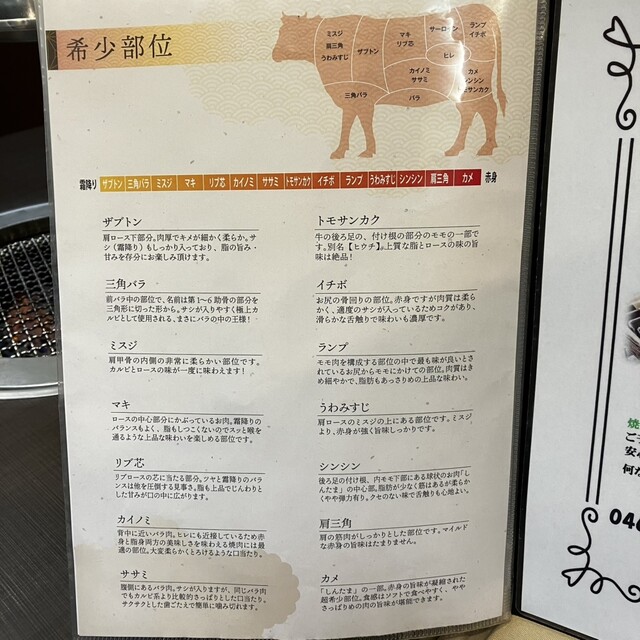 希少部位
ミスジ
肩三角
うわみすじ
ザブトン
マキ
リブ芯
サーロイン
ランプ
イチボ
ヒレ
カイノミ
ササミ
カメ
シンシン
トモサンカク
三角バラ
バラ
霜降り ザブトン 三角バラ ミスジ マキ リブ芯 カイノミ ササミ トモサンカク イチボ ランプ うわみすじ シンシン 肩三角 カメ 赤身
ザブトン
肩ロース下部分。肉厚でキメが細かく柔らか。サ
シ（霜降り）もしっかり入っており、脂の旨み・
甘みを存分にお楽しみ頂けます。
三角バラ
前バラ中の部位で、名前は第1〜6助骨の部分を
三角形に切った形から。サシが入りやすく極上カ
ルビとして使用される、まさにバラの中の王様！
ミスジ
肩甲骨の内側の非常に柔らかい部位です。
カルビとロースの味が一度に味わえます！
マキ
ロースの中心部分にかぶっているお肉。霜降りの
バランスもよく、脂もしつこくないのでスッと喉を
通るような上品な味わいを楽しめる部位です。
リブ芯
リブロースの芯に当たる部分。ツヤと霜降りのバラ
ンスは他を圧倒する見事さ。脂も上品でじんわりと
した甘みが口の中に広がります。
カイノミ
背中に近いバラ肉。ヒレにも近接しているため赤
身と脂身両方の美味しさを味わえる焼肉には最
適の部位。大変柔らかくとろけるような口当たり。
ササミ
腹側にあるバラ肉。サシが入りますが、同じバラ肉
でもカルビ系より比較的さっぱりとした口当たり。
サクサクとした歯ごたえで簡単に噛み切れます。
トモサンカク
牛の後ろ足の、付け根の部分のモモの一部で
す。別名【ヒウチ】。上質な脂とロースの味の旨
味は絶品！
イチボ
お尻の骨回りの部位。赤身ですが肉質は柔ら
かく、適度のサシが入っているためコクがあり、
滑らかな舌触りで味わいも濃厚です。
ランプ
モモ肉を構成する部位の中で最も味が良いとさ
れているお尻からモモにかけての部位。肉質はき
め細やかで、脂肪もあっさりめの上品な味わい。
うわみすじ
肩ロースのミスジの上にある部位です。ミスジ
より、赤身が強く旨味しっかりです。
シンシン
後ろ足の付け根、内モモ下部にある球状のお肉「し
んたま」の中心部。脂肪が少なく筋はあるが柔らか
くやや弾力有り。クセのない味で舌触りも心地よい。
肩三角
肩の筋肉がしっかりとした部位です。マイルド
な赤身の旨味はたまりません。
カメ
「しんたま」の一部。赤身の旨味が凝縮された
超希少部位。食感はソフトで食べやすく、やや
さっぱりめの肉の旨味が堪能できます。
焼
ご予
安心
何な
046